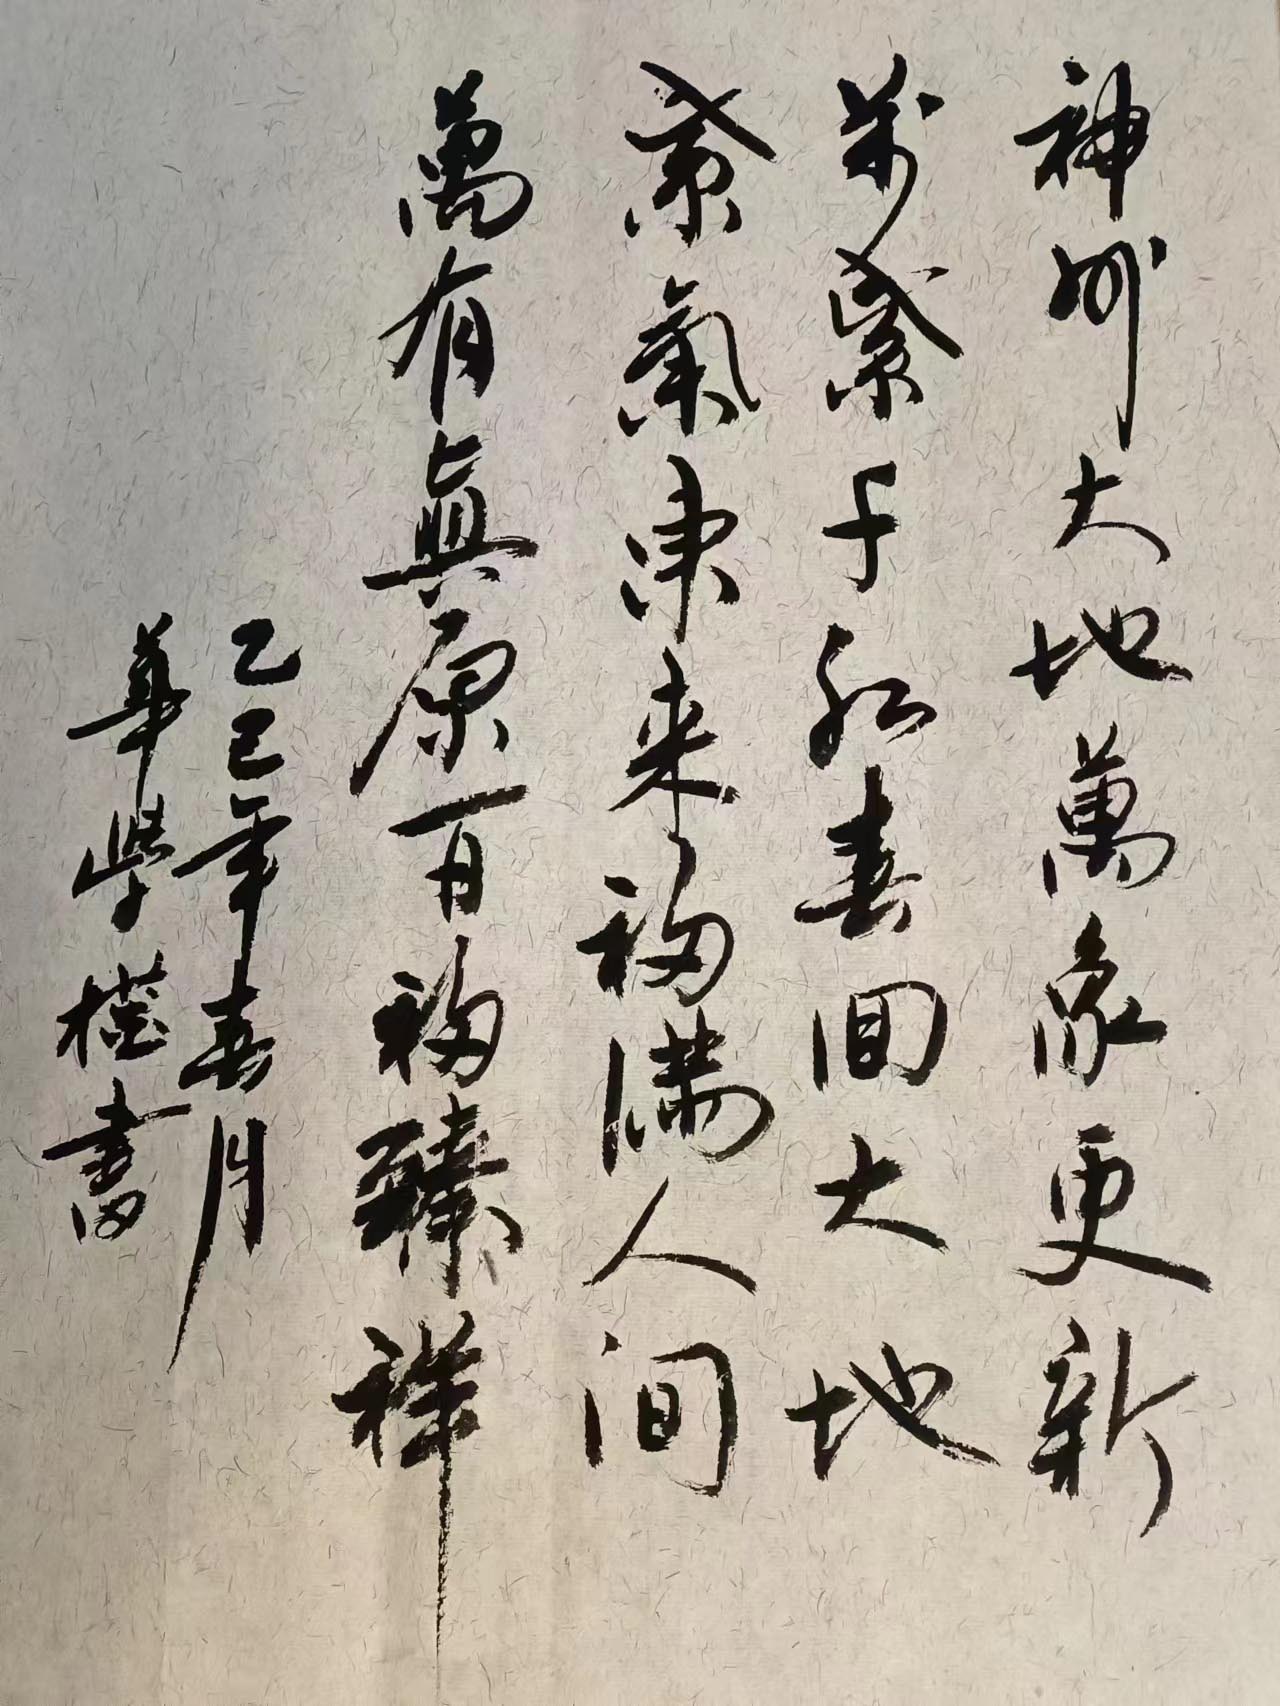 神州大地萬象更新
萬紫千红春回大地
紫氣東来福满人间
萬有真原百福臻祥
乙巳年春月
華學樁書